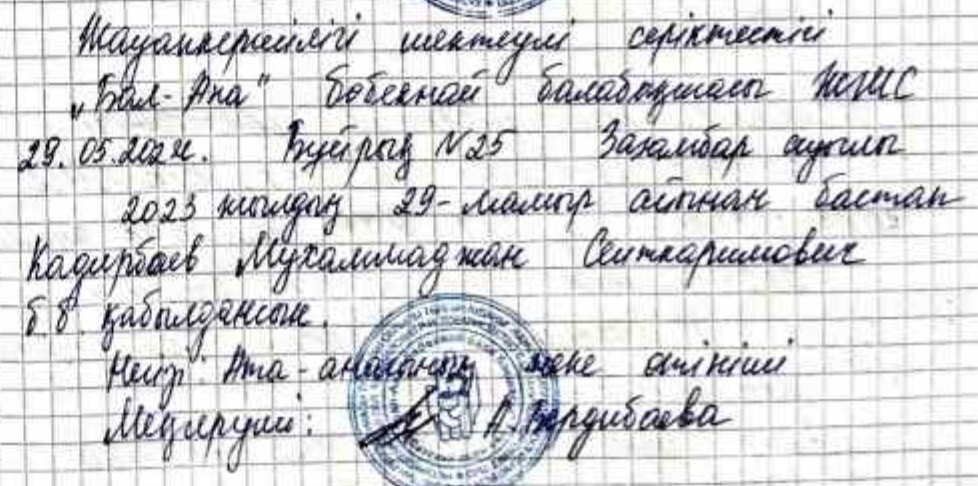 Жауапкершілігі шектеулі серіктестігі
"Бал-Ана" бөбекжай балабақшасы ЖШС
29.05.202 ж. Бұйрық N25 ауылы
2023 жылдың 29-мамыр айынан бастап
Кадирбаев Мухаммаджан Сеиткаримович
б.б. қабылдансын.
Негізі: Ата-анасының және өтініші
Меңгеруші: А.Бердибаева